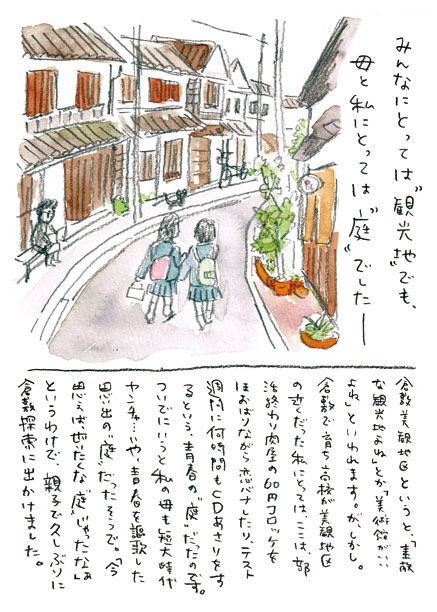 みんなにとっては"観光地"でも、
母と私にとっては"庭"でした―
倉敷美観地区というと、「素敵
な観光地よね」とか「美術館が‥
よね」といわれます。が、しかし。
倉敷で育ち高校が美観地区
の近くだった私にとっては、ここは、部
活終わり肉屋の60円コロッケを
ほおばりながら恋バナしたり、テスト
週間に何時間もCDあさりをす
るという、青春の"庭"だったのです。
ついでにいうと私の母も短大時代
ヤンチャ…いや、青春を謳歌した
思出の"庭"だったそうで。「今
思えばぜいたくな"庭"じゃったなぁ
というわけで、親子で久しぶりに
倉敷探索に出かけました。